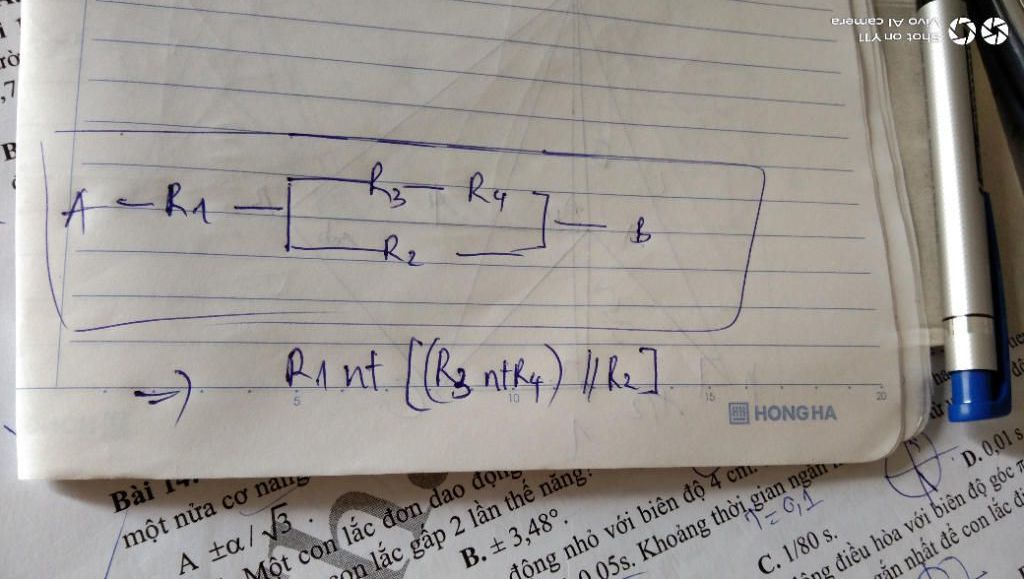 Shot on Y11
Vivo AI camera
A — R1 — R3 — R4 — B
R2
→) R1 nt [(R3 nt R4) // R2]
5 10 15 20
HONG HA
Bài 14.
một nửa cơ năng
A ±α/√3.
Một con lắc đơn dao động
con lắc gấp 2 lần thế năng?
B. ± 3,48°.
động nhỏ với biên độ 4 cm.
0,05s. Khoảng thời gian ngắn
T = 0,1
C. 1/80 s.
D. 0,01 s
điều hòa với biên độ góc
nhất để con lắc